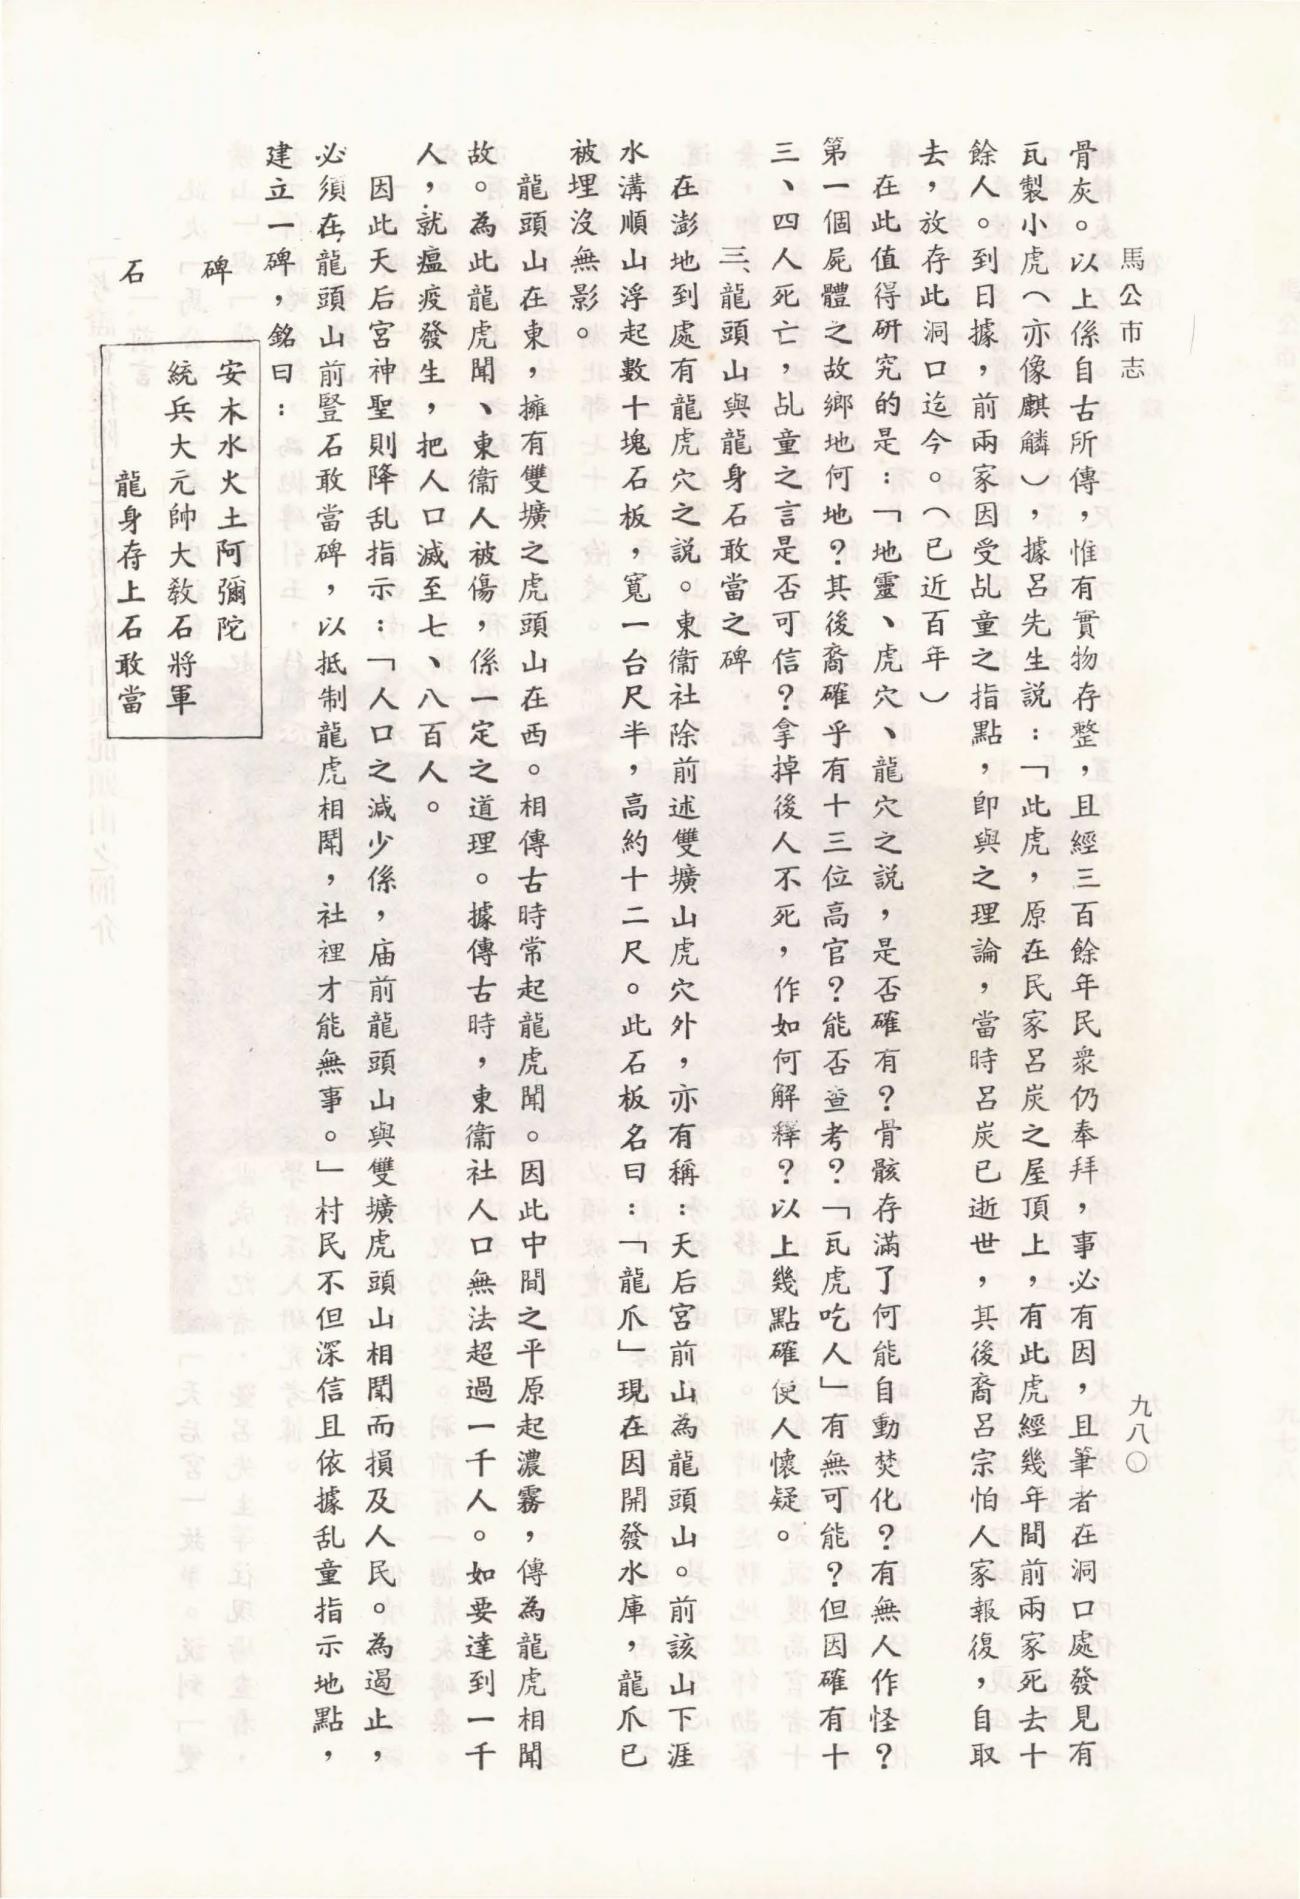 馬公市志
九八〇
骨灰。以上係自古所傳，惟有實物存整，且經三百餘年民衆仍奉拜，事必有因，且筆者在洞口處發見有
瓦製小虎（亦像麒麟），據呂先生説：「此虎，原在民家呂炭之屋頂上，有此虎經幾年間前兩家死去十
餘人。到日據，前兩家因受乩童之指點，卽與之理論，當時呂炭已逝世，其後裔呂宗怕人家報復，自取
去，放存此洞口迄今。（已近百年）
在此值得研究的是：一地靈、虎穴、龍穴之説，是否確有？骨骸存滿了何能自動焚化？有無人作怪？
第一個屍體之故鄉地何地？其後裔確乎有十三位高官？能否查考？「瓦虎吃人」有無可能？但因確有十
三、四人死亡，乩童之言是否可信？拿掉後人不死，作如何解釋？以上幾點確使人懷疑。
三、龍頭山與龍身石敢當之碑
在澎地到處有龍虎穴之説。東衞社除前述雙壙山虎穴外，亦有稱：天后宮前山為龍頭山。前該山下涯
水溝順山浮起數十塊石板，寬一台尺半，高約十二尺。此石板名曰：「龍爪」現在因開發水庫，龍爪已
被埋沒無影。
龍頭山在東，擁有雙壙之虎頭山在西。相傳古時常起龍虎鬧。因此中間之平原起濃霧，傳為龍虎相鬧
故。為此龍虎鬧、東衞人被傷，係一定之道理。據傳古時，東衞社人口無法超過一千人。如要達到一千
人，就瘟疫發生，把人口滅至七、八百人。
因此天后宮神聖則降乱指示：「人口之減少係，庙前龍頭山與雙壙虎頭山相鬧而損及人民。為遏止，
必須在龍頭山前豎石敢當碑，以抵制龍虎相鬧，社裡才能無事。」村民不但深信且依據乱童指示地點，
建立一碑，銘曰：
碑
石
安木水火土阿彌陀
統兵大元帥大教石將軍
龍身存上石敢當